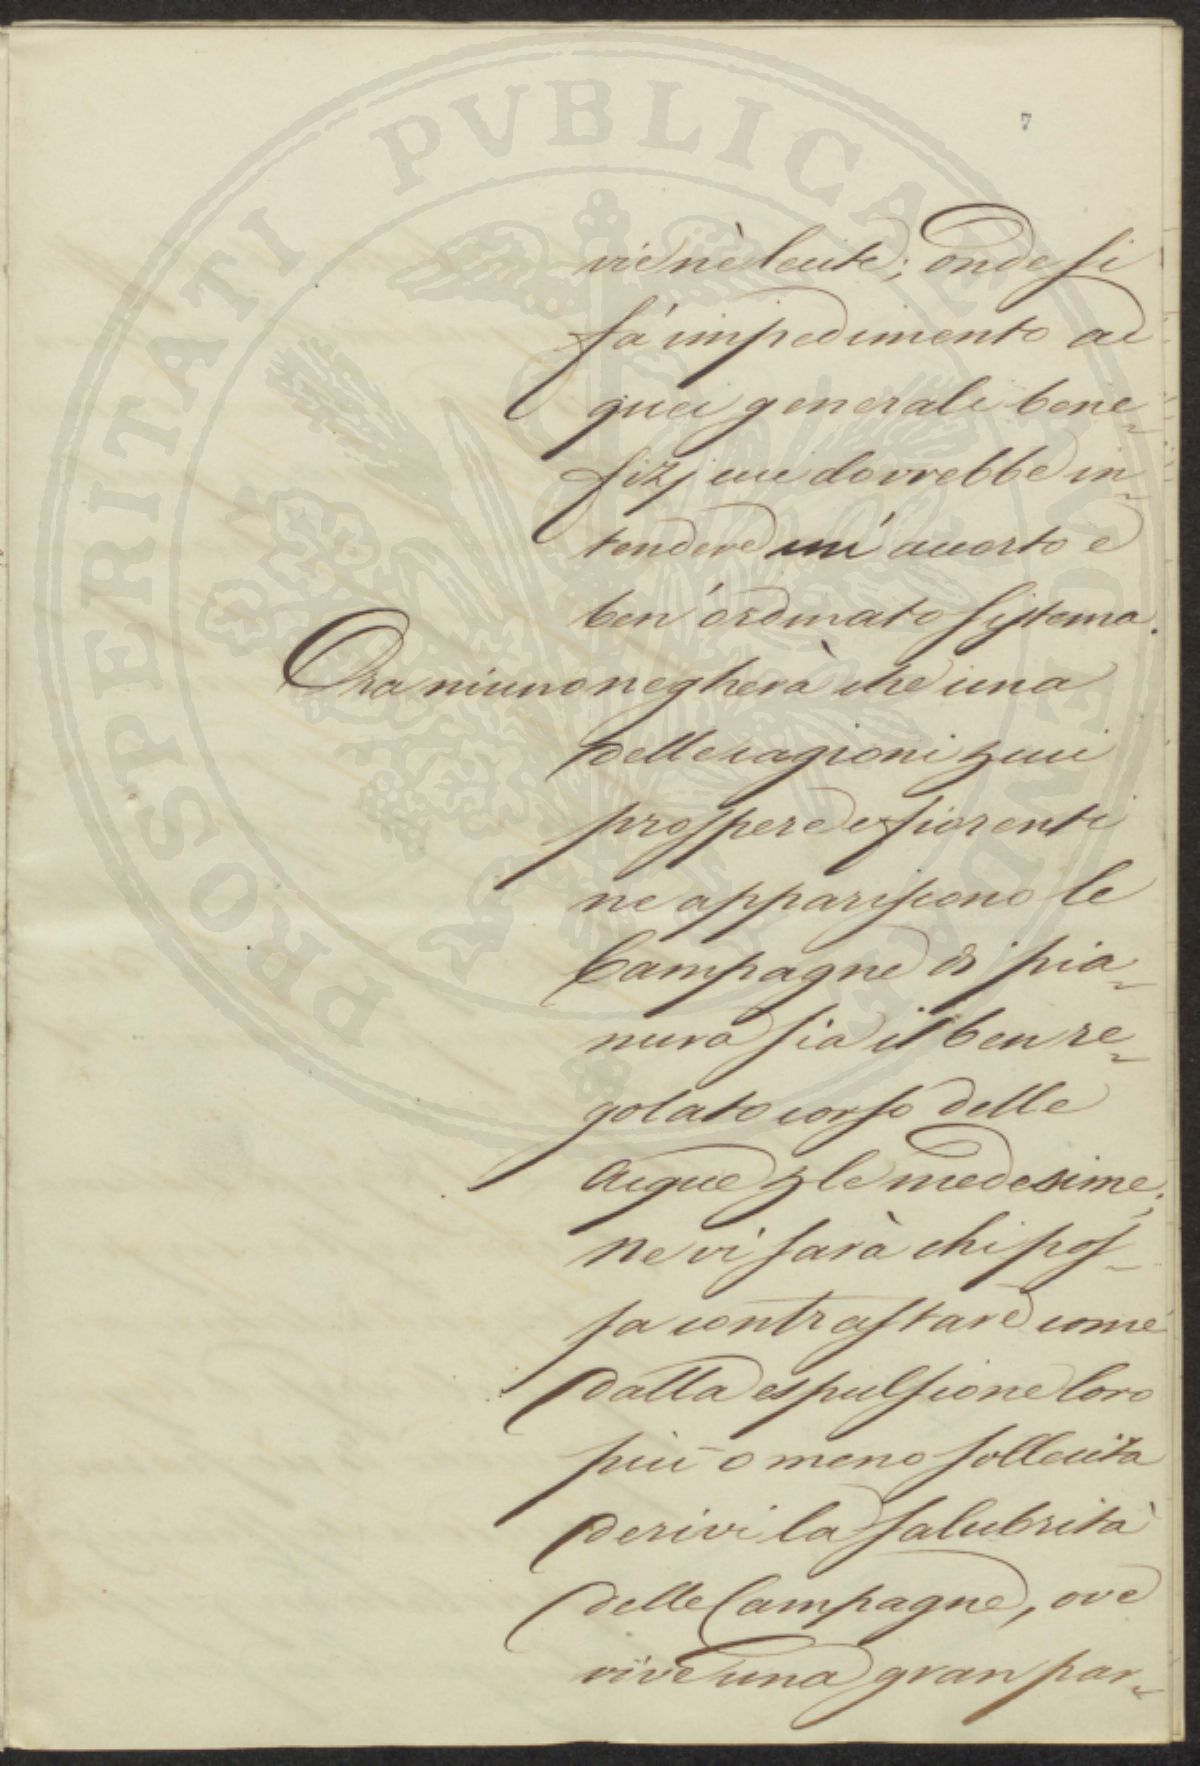 PROSPERITATI PVBLICAE AVGENDAE
7
vie nè lecite; onde si
fà impedimento ad
quei generali bene-
fizj cui dovrebbe in-
tendere un' accorto e
ben' ordinato sistema.
Ora niuno negherà che una
delle ragioni p cui
prospere e fiorenti
ne appariscono le
Campagne di pia-
nura sia il ben re-
golato corso delle
acque p le medesime;
ne vi sarà chi pos-
sa contrastare come
dalla espulsione loro
più o meno sollecita
derivi la salubrità
delle Campagne, ove
vive una gran par-